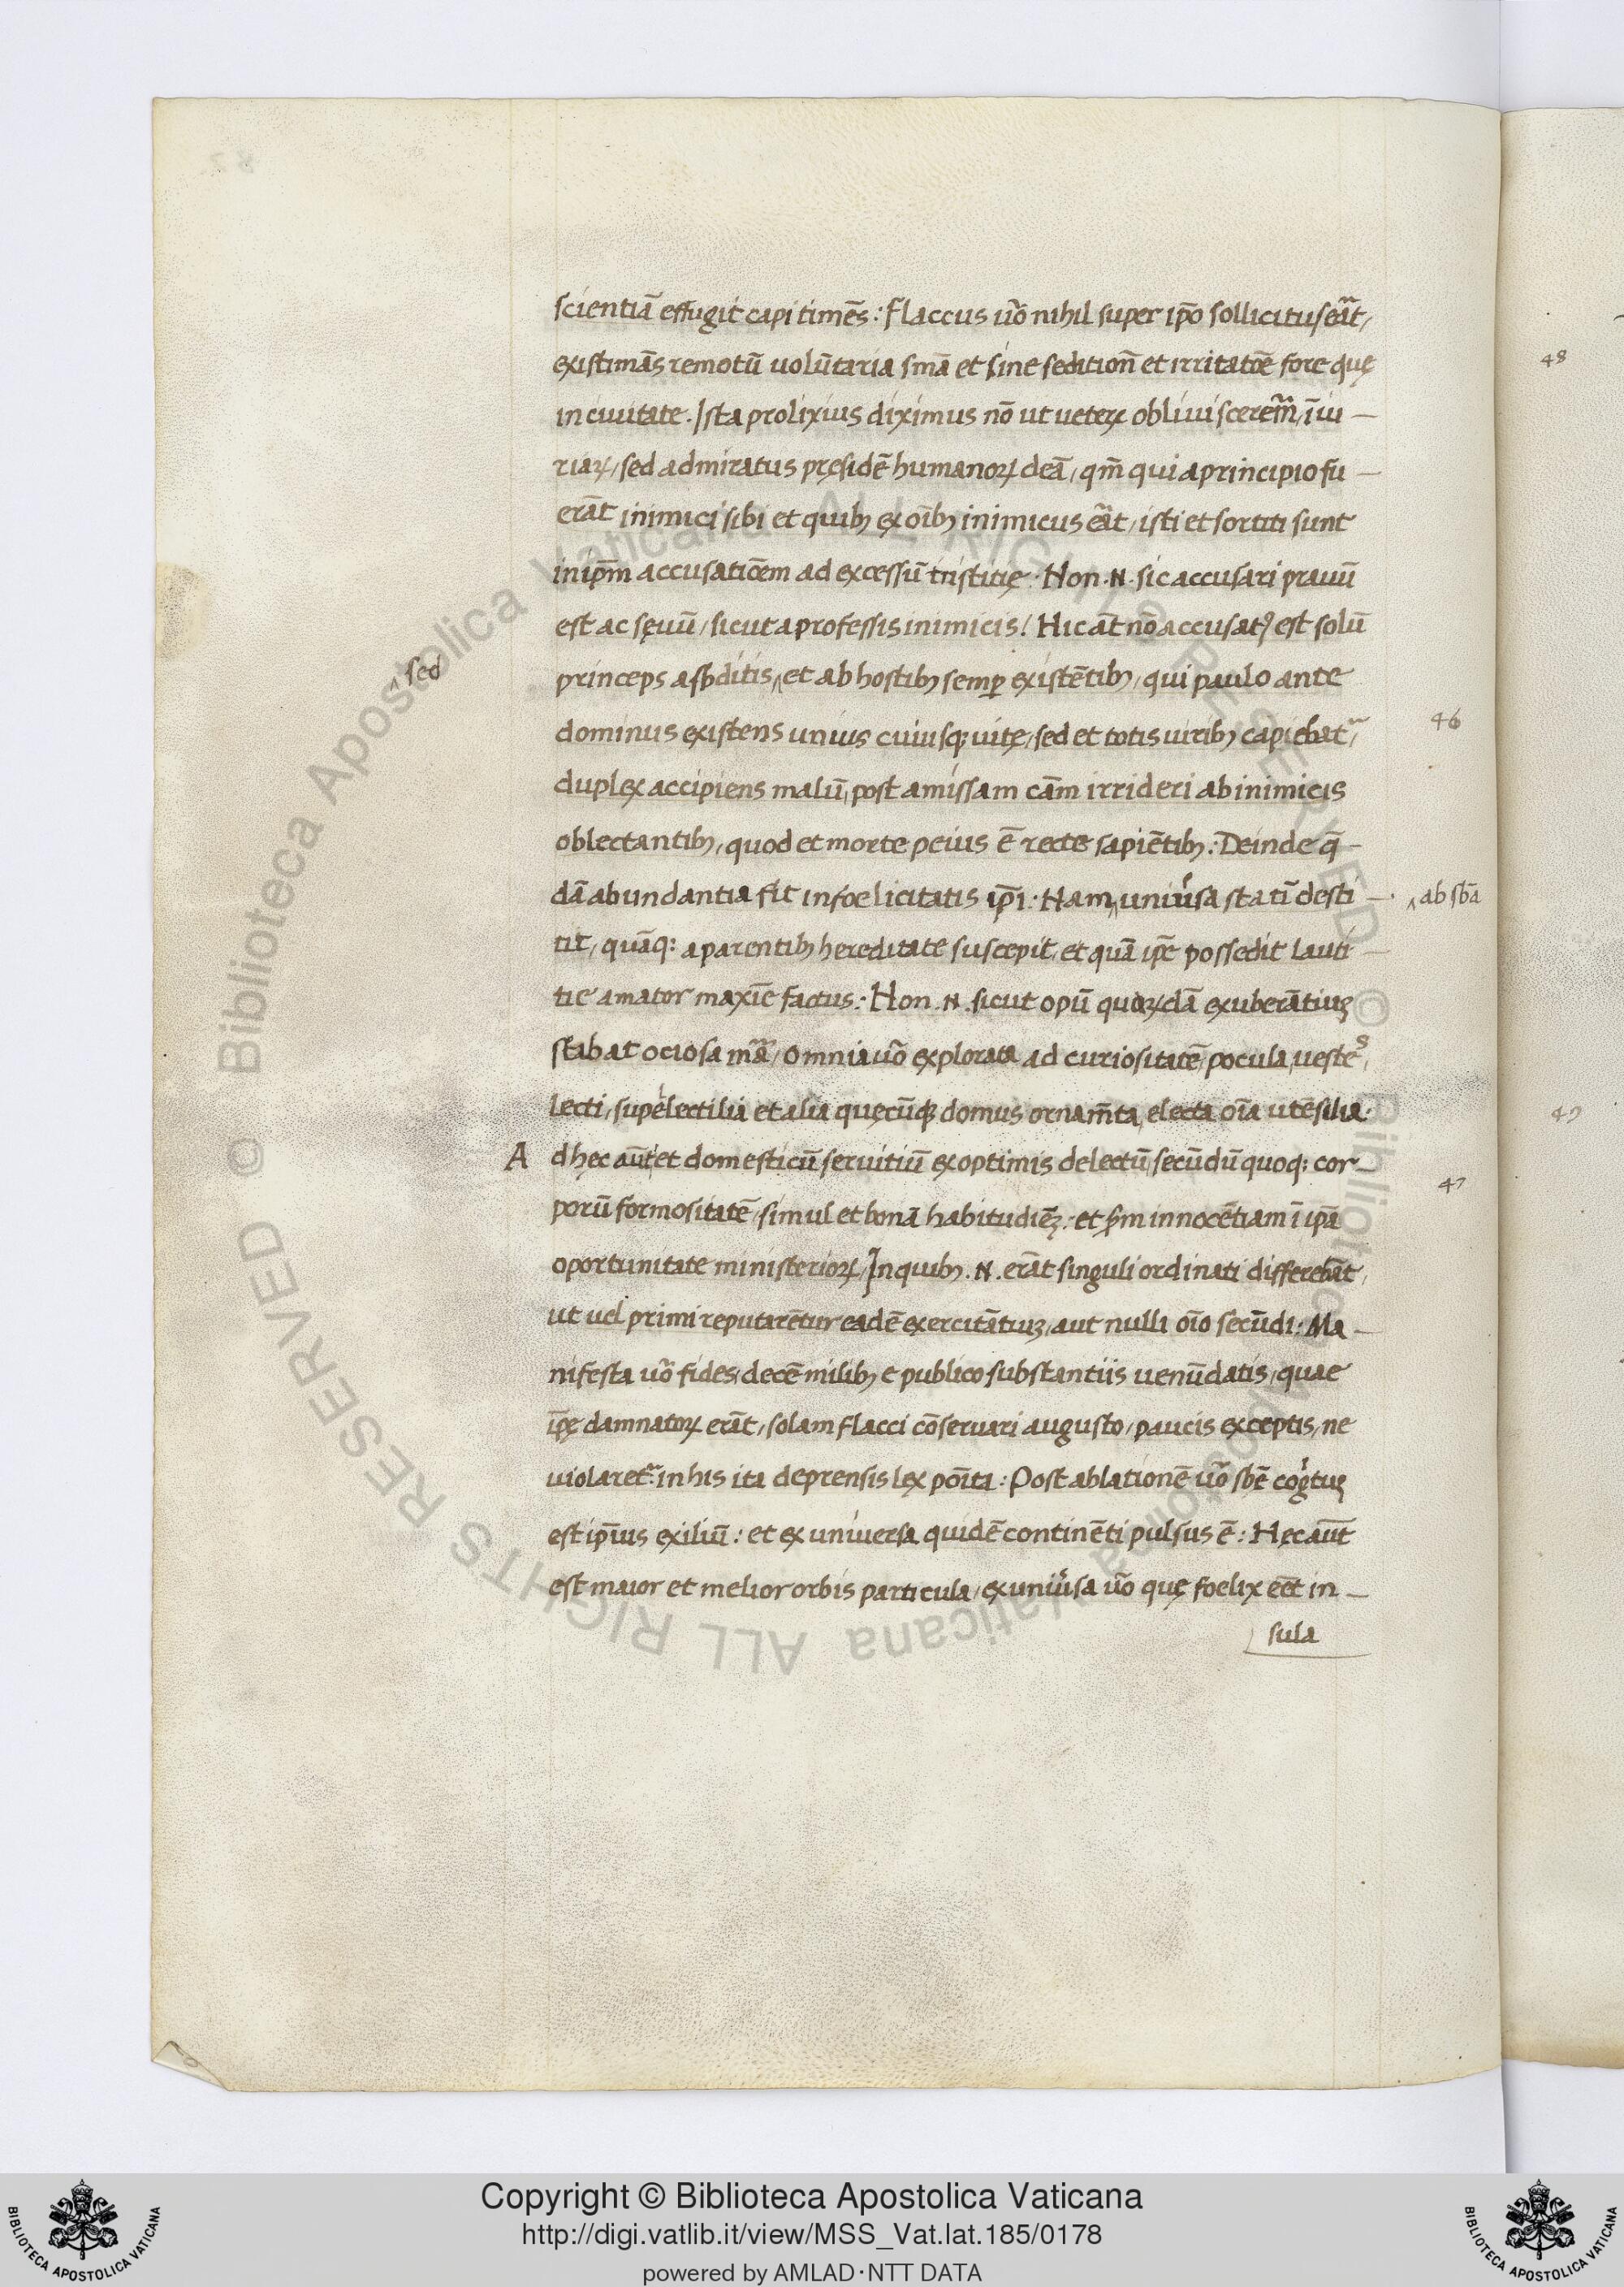 scientiā effugit capi timēs: Flaccus uo᷃ nihil super ip̄o sollicitus erat,
existimās remotū uolūtaria sm̄a et sine sedition̄ et irritatōe fore quę
in ciuitate. Ista prolixius diximus nō ut ueterꝝ obliuisceremr̃, īiu—
riaꝝ, sed admiratus pręsidē humanoꝝ deā, qm̄ qui a principio fu—
erāt inimici sibi et quibꝫ ex oībꝫ inimicus erat, isti et sortiti sunt
in ip̄m accusatiōem ad excessū tristitię: Non .N. sic accusari prauū
est ac sęuū, sicut a professis inimicis! Hic āt nō accusatꝰ est solū
‸sed
princeps a sb̄ditis,‸et ab hostibꝫ semꝑ existētibꝫ, qui paulo ante
dominus existens unius cuiusqꝫ uitę, sed et totis uiribꝫ capiebatr̃,
46
duplex accipiens malū, post amissam cām irrideri ab inimicis
oblectantibꝫ, quod et morte peius ē recte sapiētibꝫ: Deinde q̄—
dā abundantia fit infoelicitatis ip̄i: Nam‸uniu᷃sa statī desti—
‸ab sb̄a
tit, quāqꝫ a parentibꝫ hereditate suscepit, et quā ip̄e possedit lauti—
tie amator maxīe factus: Non .N. sicut opū quoꝝdā exuberātiuꝫ
stabat ociosa mr̃a, omnia uo᷃ explorata ad curiositatē, pocula, uestes,
lecti, supelectilia et alia quęcūqꝫ domus ornam̄ta, electa oīa utēsilia.
A dhęc aūt et domesticū seruitiū ex optimis delectū, secūdū quoqꝫ cor—
47
porū formositatē, simul et bonā habitudiēꝫ: et ꝑm innocētiam ī ip̄a
oportunitate ministerioꝝ, In quibꝫ .N. erāt singuli ordinati differebāt,
ut uel primi reputarētur eadē exercitātiuꝫ, aut nulli oīo secūdi: Ma—
nifesta uo᷃ fides, decē milibꝫ e publico substantiis uenūdatis, quae
ip̄ę damnatoꝝ erāt, solam flacci cōseruari augusto, paucis exceptis, ne
uiolaretr̃ in his ita deprensis lex pōita: Post ablationē uo᷃ sb̄e cog᷃tuꝫ
est ip̄ius exiliū: et ex uniuersa quidē continēti pulsus ē: Hęc aūt
est maior et melior orbis particula, ex uniu᷃sa uo᷃ quę foelix eēt in—
sula
48
49
Copyright © Biblioteca Apostolica Vaticana
http://digi.vatlib.it/view/MSS_Vat.lat.185/0178
powered by AMLAD·NTT DATA
BIBLIOTECA APOSTOLICA VATICANA
BIBLIOTECA APOSTOLICA VATICANA
© Biblioteca Apostolica Vaticana ALL RIGHTS RESERVED © Biblioteca Apostolica Vaticana ALL RIGHTS RESERVED